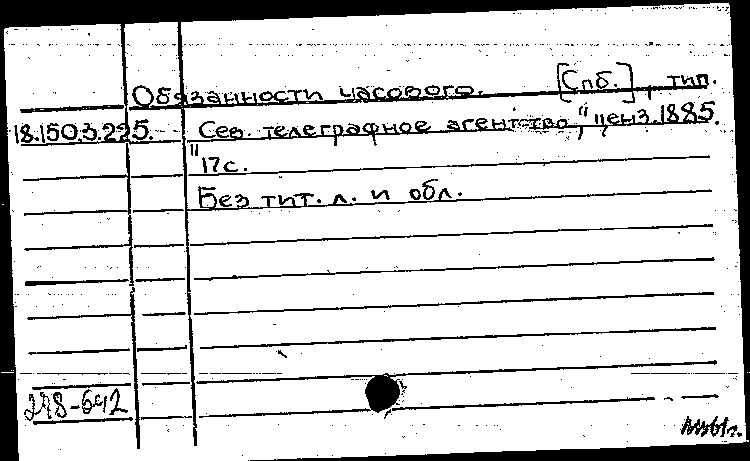 Обязанности часового. [Спб.], тип.
18.150.3.225. Сев. телеграфное агентство, ценз. 1885.
17с.
Без тит. л. и обл.